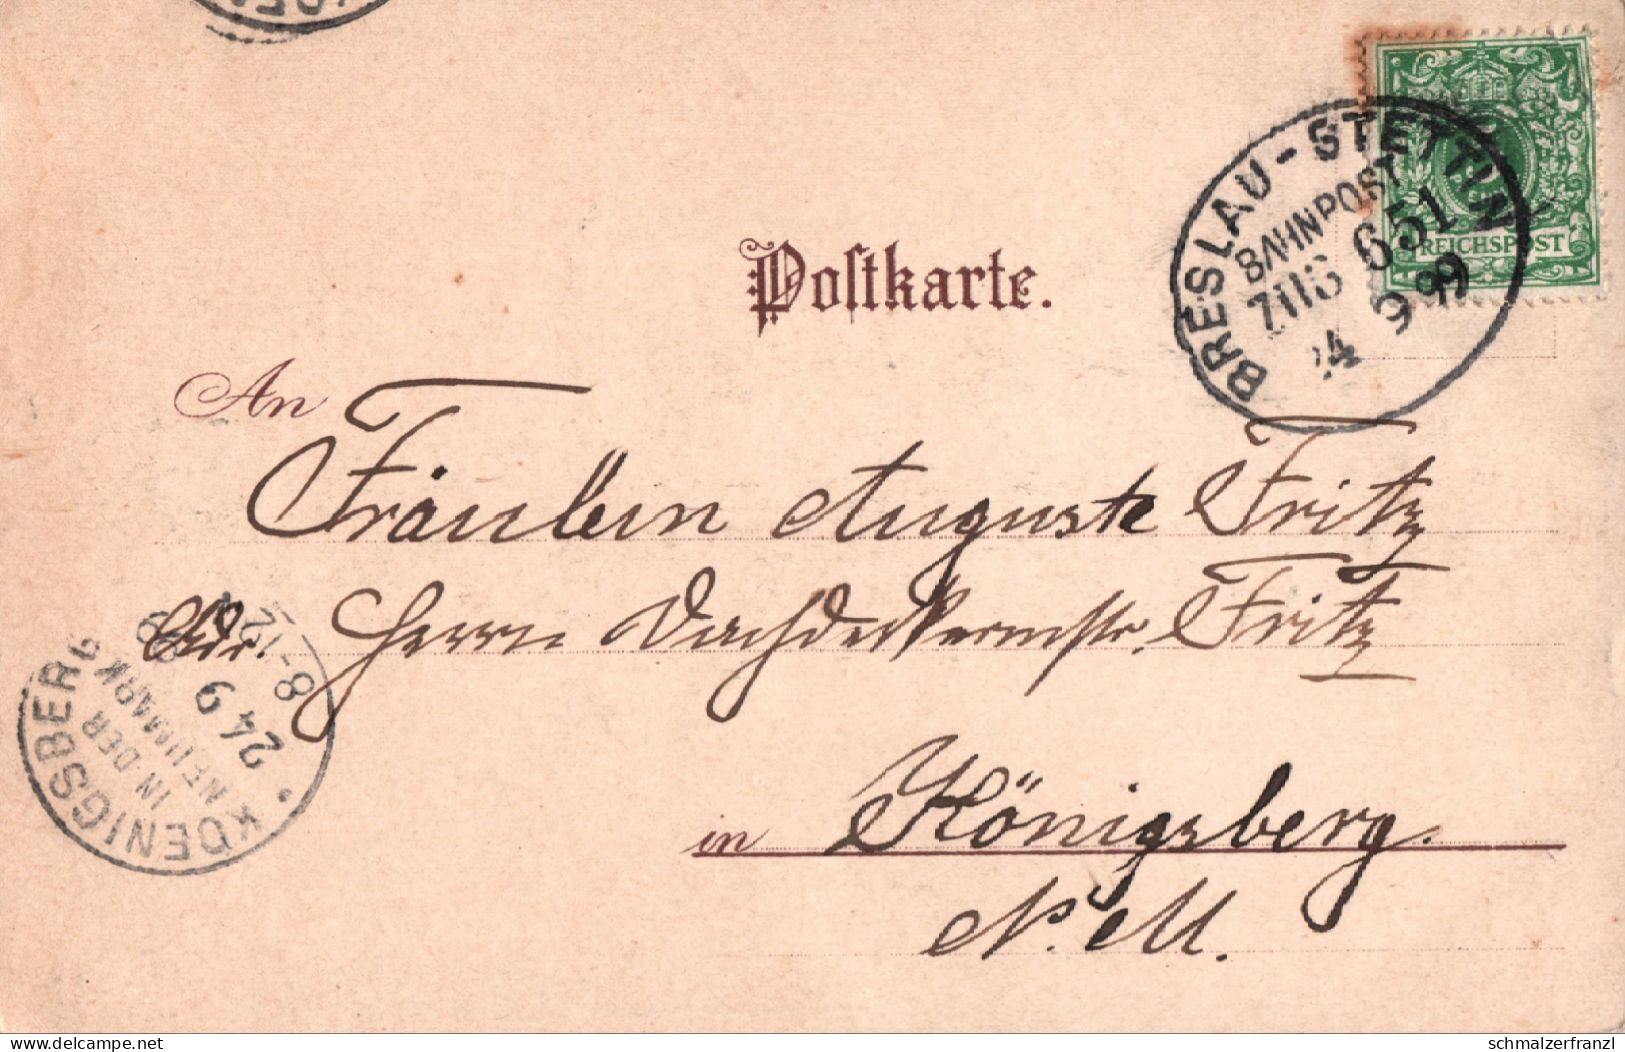 BRESLAU-STETTIN
BAHNPOST
ZUG 651
24 9 99
REICHSPOST
Postkarte.
An
Fräulein Auguste Fritz
Adr. Herrn Dachdeckermstr. Fritz
in Königsberg.
N. M.
KOENIGSBERG
IN DER
NEUMARK
24 9
8-12
delcampe.net
schmalzerfranzl